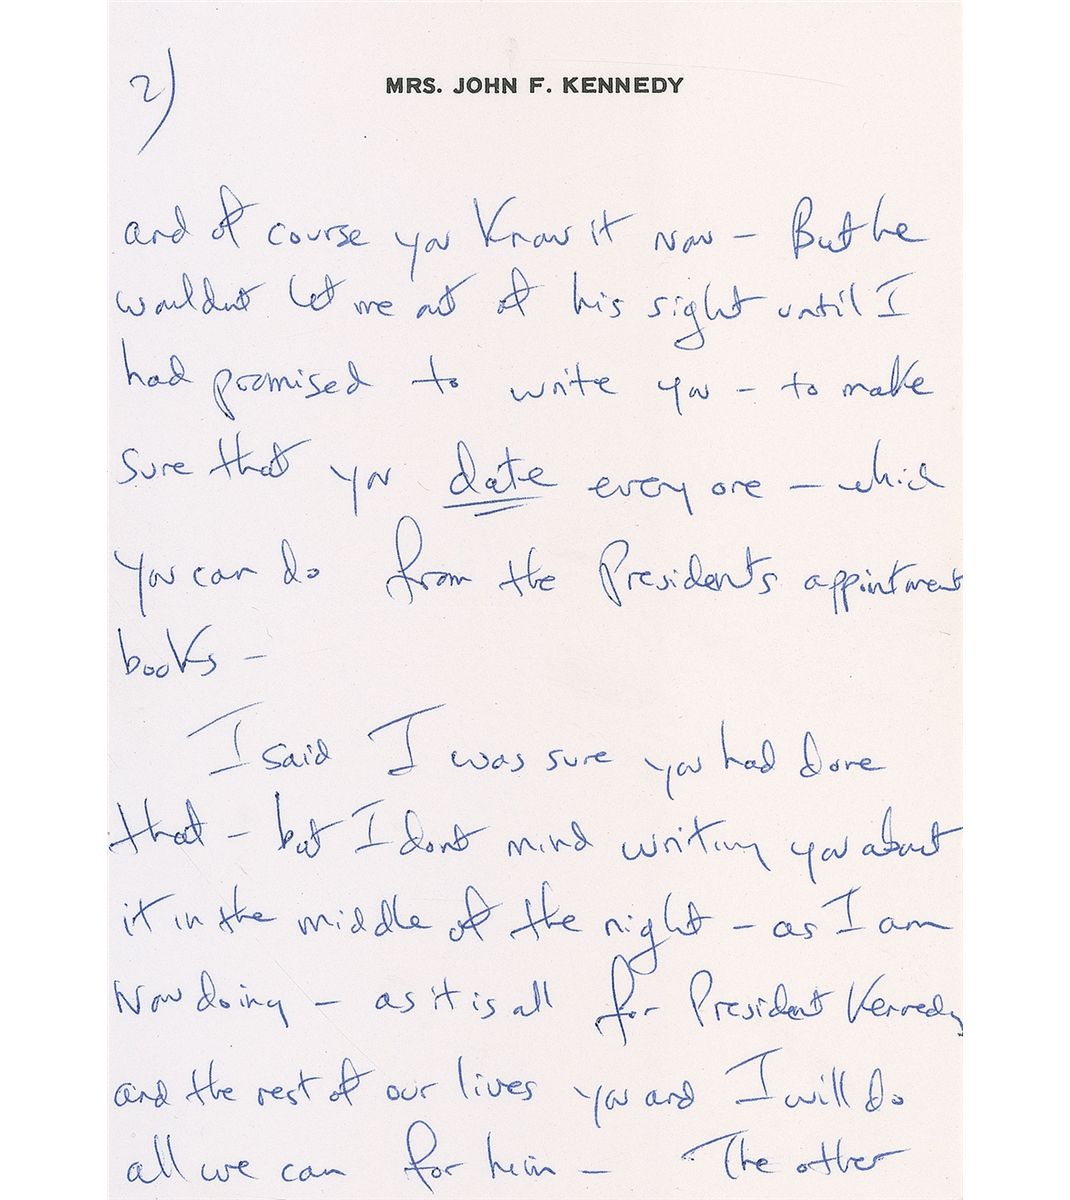 2)
MRS. JOHN F. KENNEDY
and of course you know it now – But he
wouldnt let me out of his sight until I
had promised to write you – to make
sure that you date every one – which
you can do from the Presidents appointment
books –
I said I was sure you had done
that – but I dont mind writing you about
it in the middle of the night – as I am
now doing – as it is all for President Kennedy
and the rest of our lives you and I will do
all we can for him – The other